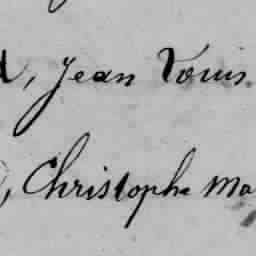 , Jean Louis
, Christophe Ma